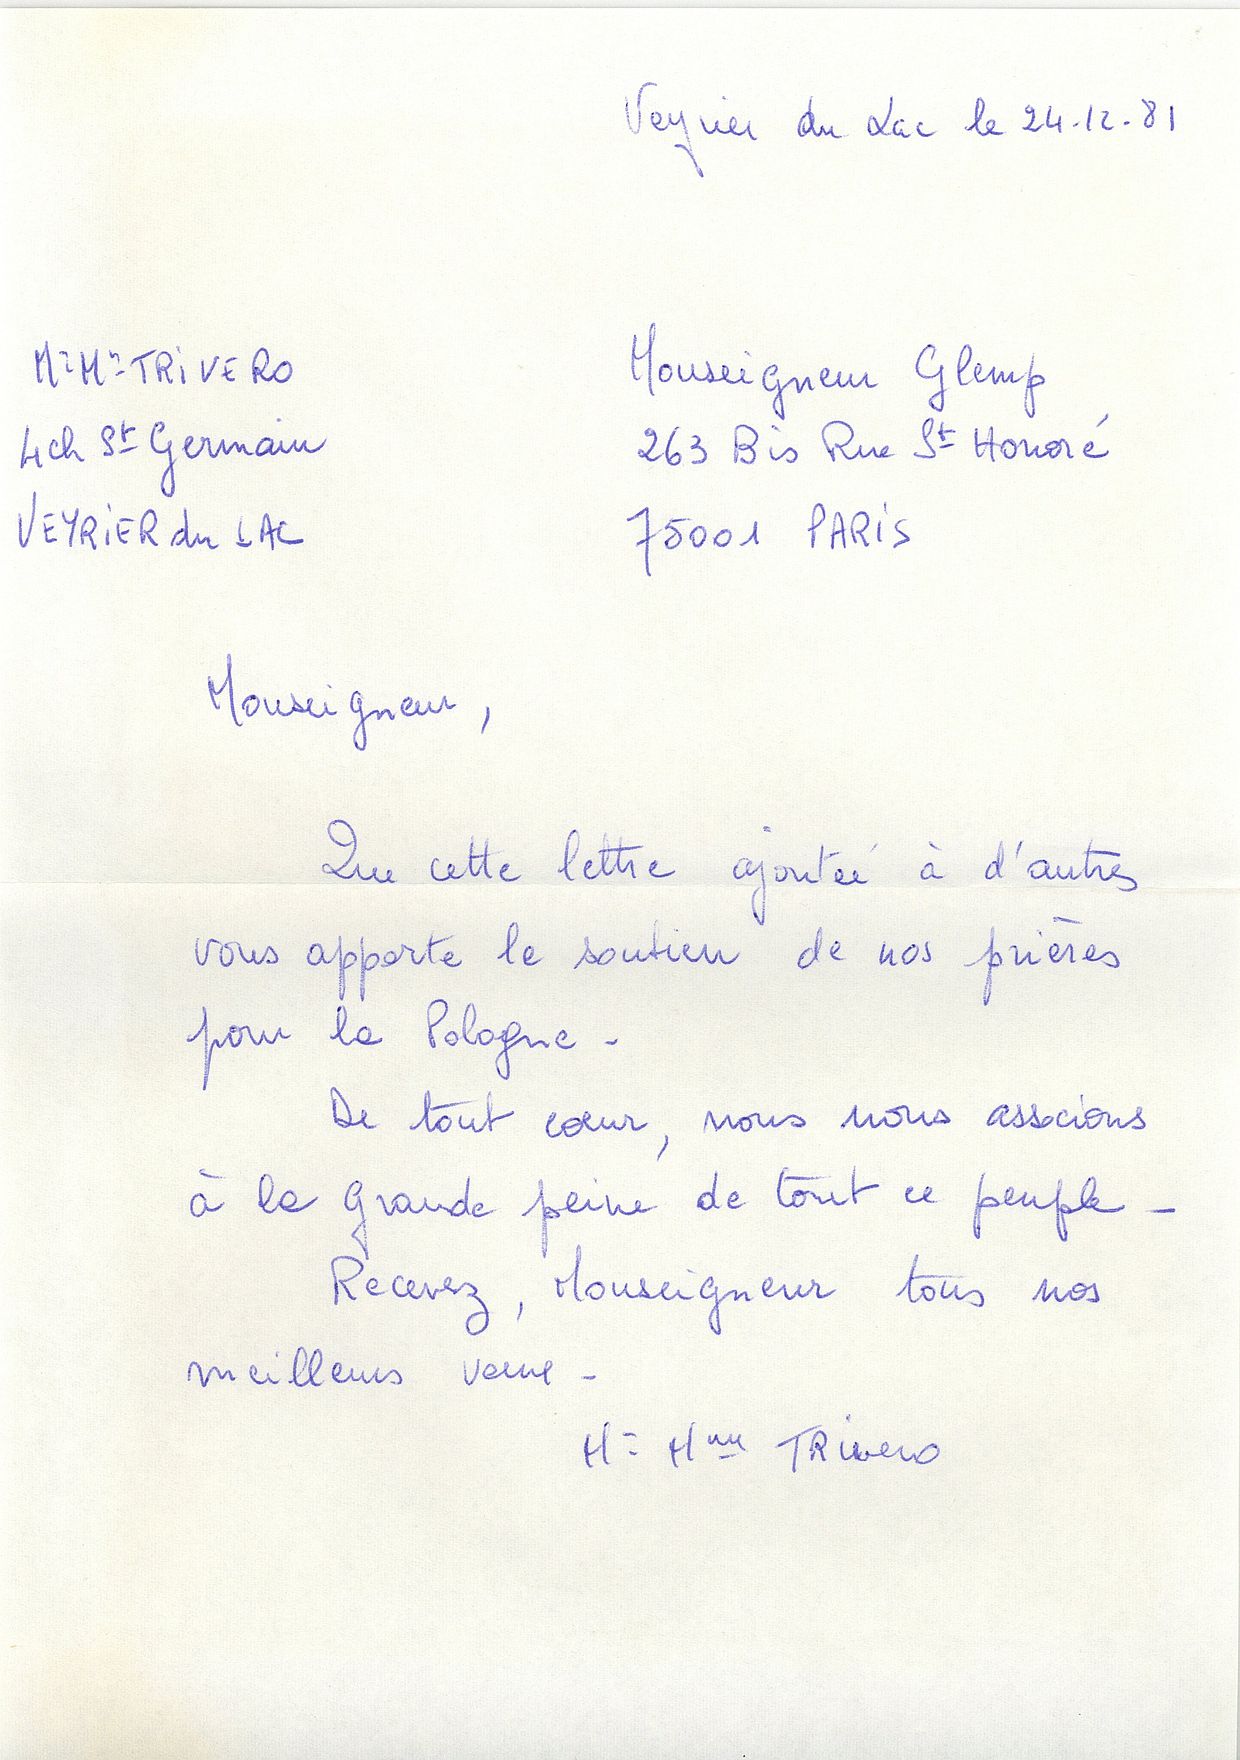 Veyrier du Lac le 24.12.81
Mr Mr TRiVERO
4 ch St Germain
VEYRiER du LAC
Monseigneur Glemp
263 Bis Rue St Honoré
75001 PARiS
Monseigneur,
Que cette lettre ajoutée à d'autres
vous apporte le soutien de nos prières
pour la Pologne -
De tout cœur, nous nous associons
à la grande peine de tout ce peuple -
Recevez, Monseigneur tous nos
meilleurs vœux -
Mr Mme TRivero